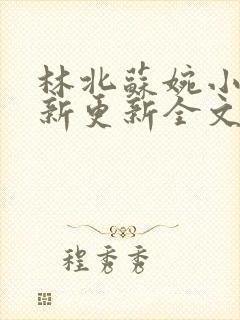 林北蘇婉小
新更新全文
程秀秀